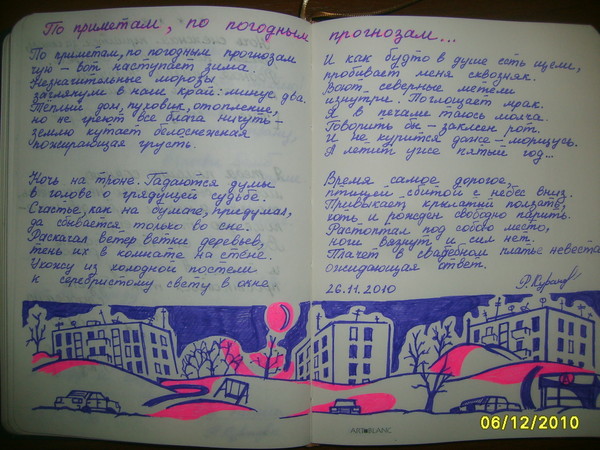 По приметам, по погодным прогнозам...
По приметам, по погодным прогнозам
чую – вот наступает зима.
Незначительные морозы
заглянули в наш край: минус два.
Тёплый дом, пуховик, отопление,
но не греют все блага ничуть –
землю кутает белоснежная
пожирающая грусть.
Ночь на троне. Гадаются думы
в голове о грядущей судьбе.
Счастье, как на бумаге, придумал,
да сбывается только во сне.
Раскачал ветер ветки деревьев,
тень их в комнате на стене.
Ухожу из холодной постели
к серебристому свету в окне
И как будто в душе есть щели,
пробивает меня сквозняк.
Воют северные метели
изнутри. Поглощает мрак.
Я в печали таюсь молча.
Говорить бы – заклеен рот.
И не курится даже – морщусь.
А летит уже пятый год...
Время самое дорогое,
птицей сбитой с небес вниз.
Привыкает крылатый ползать,
хоть и рожден свободно парить.
Растоптал под собою место,
ноги вязнут и сил нет.
Плачет в свадебном платье невеста
ожидающая ответ.
26.11.2010
ARTBLANC
06/12/2010